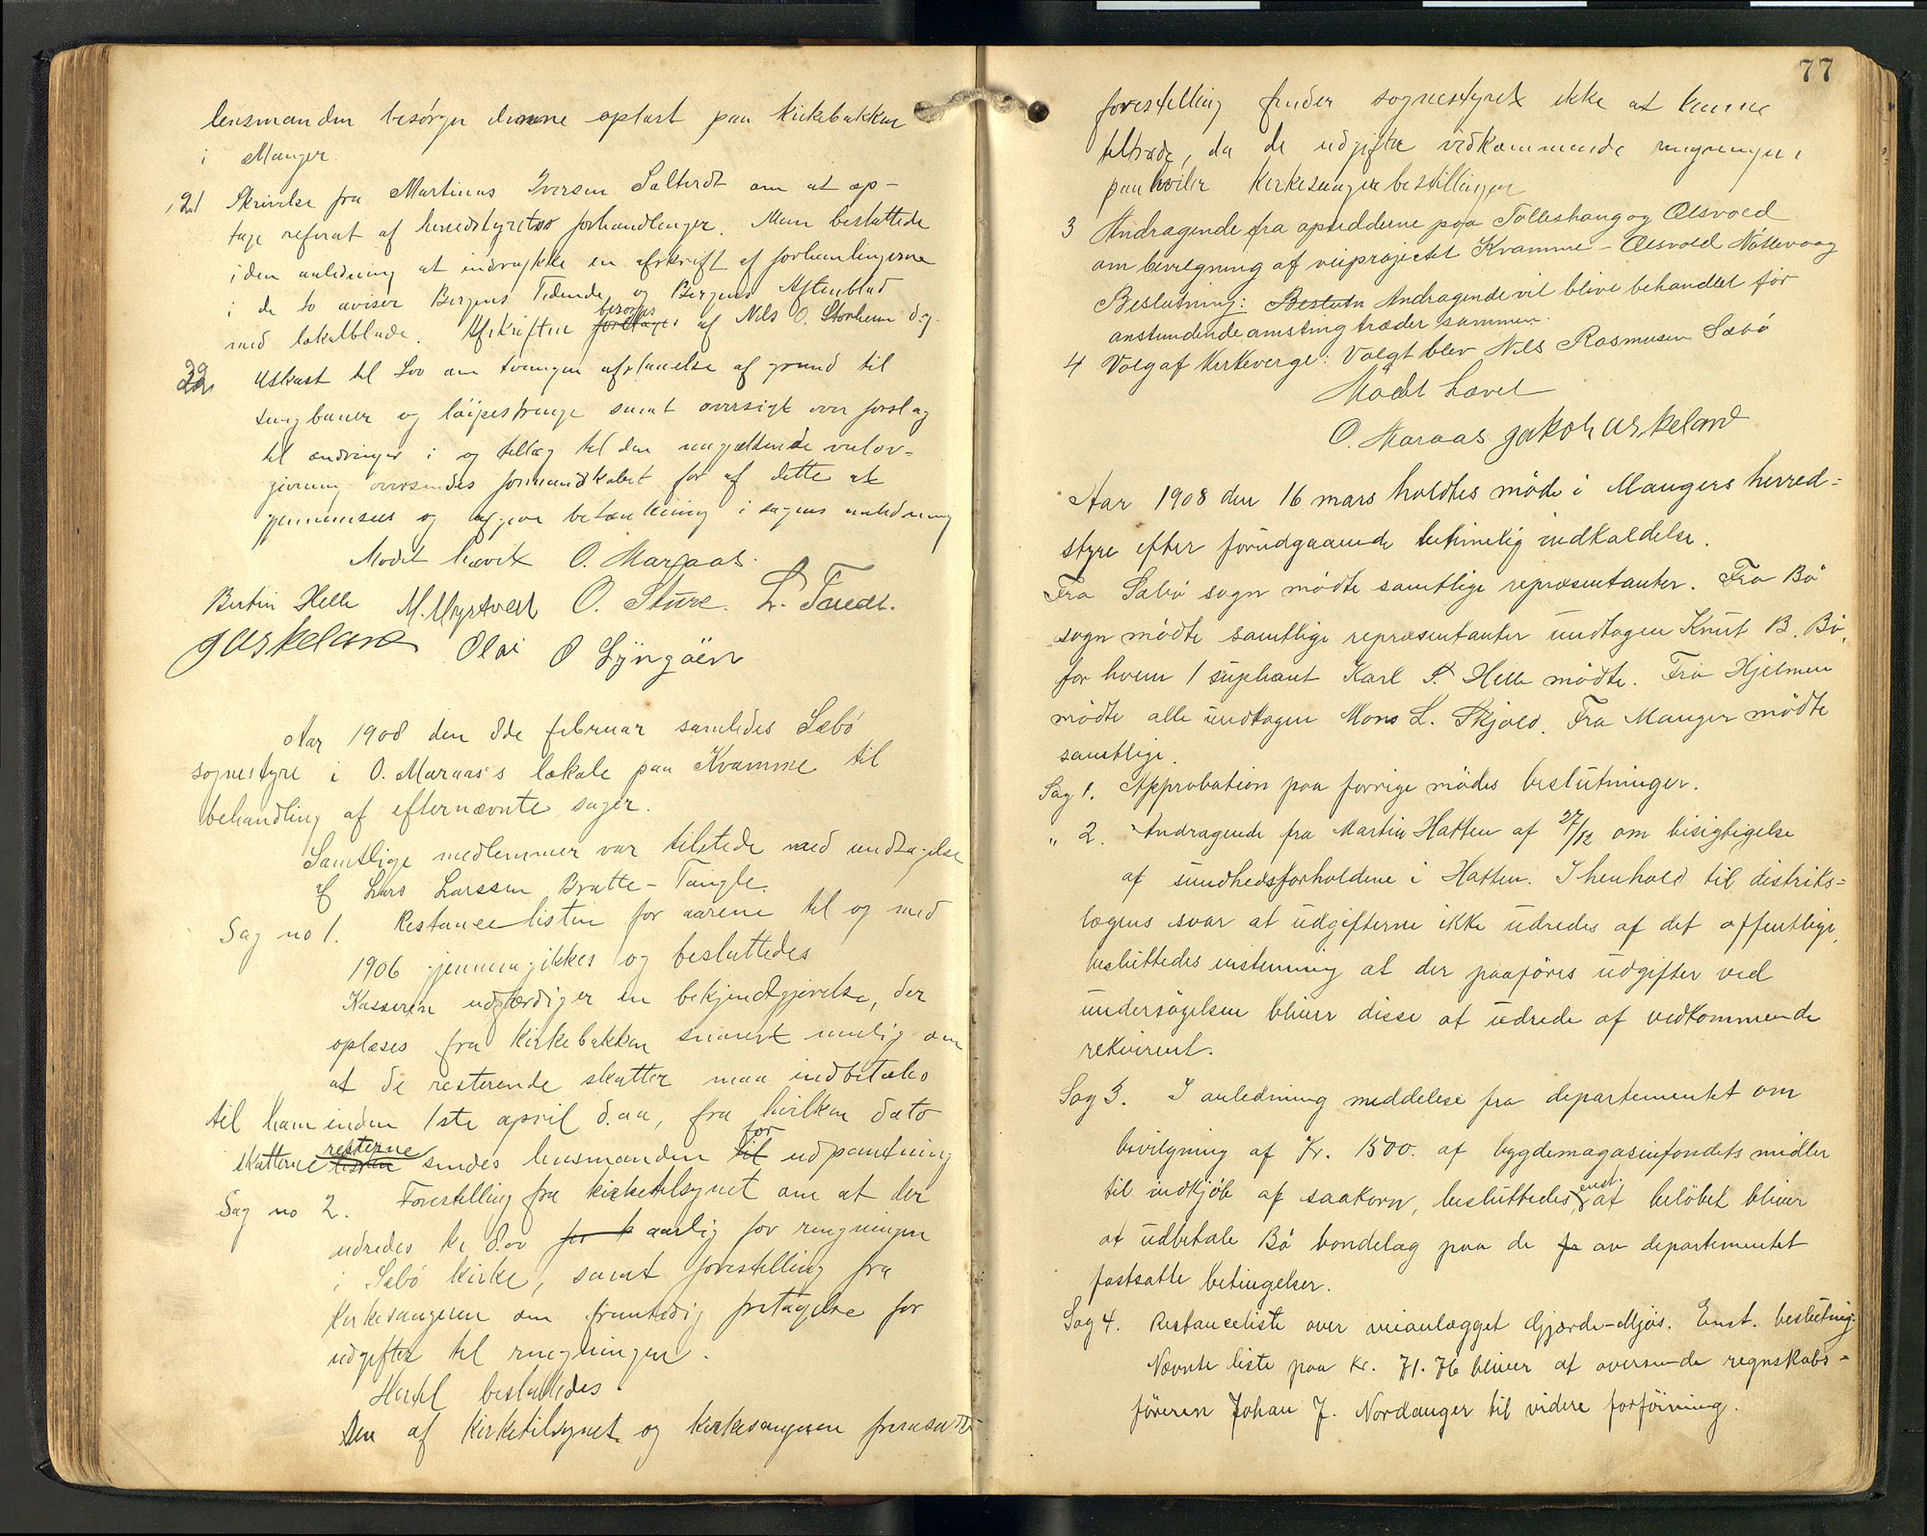 lensmanden besørger denne oplæst paa kirkebakken
i Manger.
21 Skrivelse fra Martinus Iversen Sælterdt om at op-
tage referat af herredstyrets forhandlinger. Man besluttede
i den anledning at indrykke en afskrift af forhanlingerne
i de to aviser Bergens Tidende og Bergens Aftenblad
med lokalblade. Afskriften besørges af Nils O. Storheim d.y.
22 Utkast til Lov om tvungen afstaaelse af grund til
taugbaner og løipestrenge samt oversigt over forslag
til ændringer i og tillæg til den nugjældende veilov-
givning oversendes formandskabet for af dette at
gjennemsees og afgive betænkning i sagens anledning
Mødet hævet O. Maraas.
Bertin Helle M. Myrtvedt O. Sture. L. Tveit.
J Askeland Olai O Lyngøien
Aar 1908 den 8de februar samledes Sæbø
sognestyre i O. Maraas's lokale paa Kvamme til
behandling af efternævnte sager.
Samtlige medlemmer var tilstede med undtagelse
af Lars Larssen Bratte-Taugle.
Sag no 1. Restancelisten for aarene til og med
1906 gjennemgikkes og besluttedes
Kasseren udfærdiger en bekjendtgjørelse, der
oplæses fra kirkebakken snarest mulig om
at de resterende skatter maa indbetales
til ham inden 1ste april d.aa, fra hvilken dato
skatterne resterne sendes lensmanden for udpantning
Sag no 2. Forestilling fra kirketilsynet om at der
udredes kr 8.00 aarlig for ringningen
i Sæbø kirke, samt forestilling fra
kirkesangeren om fremtidig fritagelse for
udgifter til ringningen.
Hertil besluttedes.
Den af kirketilsynet og kirkesangeren fremsatte
77
forestilling finder sognestyret ikke at kunne
tiltræde, da de udgifter vedkommende ringningen
paahviler kirkesangerbestillingen
3 Andragende fra opsidderne paa Tolleshaug og Ølsvold
om bevilgning af veiprojectet Kvamme - Ølsvold Nøttevaag
Beslutning: Beslutn Andragende vil blive behandlet før
anstundende amsting træder sammen.
4 Valg af Kirkeverge: Valgt blev Nils Rasmusen Sæbø
Mødet hævet
O. Maraas Jakob Askeland
Aar 1908 den 16 mars holdtes møde i Mangers herred-
styre efter forudgaaende betimelig indkaldelse.
Fra Sæbø sogn mødte samtlige repræsentanter. Fra Bø
sogn mødte samtlige repræsentanter undtagen Knut B. Bø,
for hvem 1 supleant Karl P. Helle mødte. Fra Hjelmen
mødte alle undtagen Mons L. Skjold. Fra Manger mødte
samtlige.
Sag 1. Approbation paa forrige mødes beslutninger.
" 2. Andragende fra Martin Hatten af 27/12 om bisigtigelse
af sundhedsforholdene i Hatten. I henhold til distriks-
lægens svar at udgifterne ikke udredes af det offentlige,
besluttedes enstemmig at der paaføres udgifter ved
undersøgelsen bliver disse at udrede af vedkommende
rekvirent.
Sag 3. I anledning meddelelse fra departementet om
bevilgning af Kr. 1500. af bygdemagasinfondets midler
til indkjøb af saakorn, besluttedes enst. at beløbet bliver
at udbetale Bø bondelag paa de fa av departementet
fastsatte betingelser.
Sag 4. Restanceliste over veianlægget Gjærde-Mjøs. Enst. beslutning:
Nævnte liste paa kr. 71.76 bliver at oversende regnskabs-
føreren Johan J. Nordanger til videre forføining.